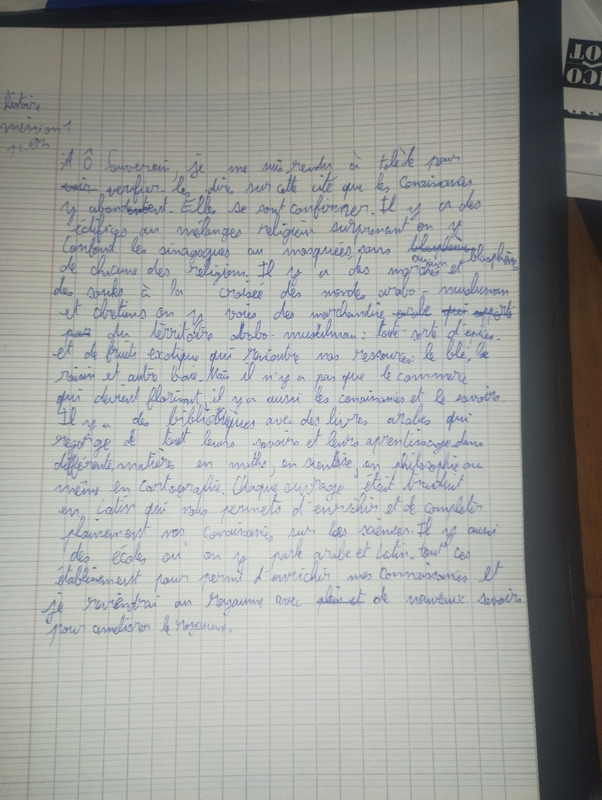 histoire
mission 1
A Ô Souverain, je me suis rendu à tolède pour
voir verifier les dire sur cette cité que les conaissances
y abondent. Elles se sont confirmer. Il y a des
édifices au mélanges religieux surprenant on y
confond les sinagogues au mosquées sans blasphème
aucun blasphème
de chacune des religions. Il y a des marchés et
des souks à la croisée des mondes arabo-musulman
et chrétiens on y voies des marchandise arabe qui apporté
par du térritoire arabo-musulman : toute sorte d'épices
et de fruits exotique qui rencontre nos ressources : le blé, le
raisin et autre baie. Mais il n'y a pas que le commerce
qui devient florisant, il y a aussi les conaissances et le savoirs.
Il y a des bibliothèques avec des livres arabes qui
regorge de tout leurs savoirs et leurs aprentissage dans
différente matières en maths, en sientise, en philosophie ou
même en cartographie. Chaque ouvrage était traduit
en latin qui nous permets d'enrichir et de completer
plainement nos conaissances sur les sciences. Il y aussi
des écoles où on y parle arabe et latin. tout ces
établinement pour permit d'enrichir mes connaissances et
je reviendrai au royaume avec plein et de nouveaux savoirs
pour améliorer le royaume.